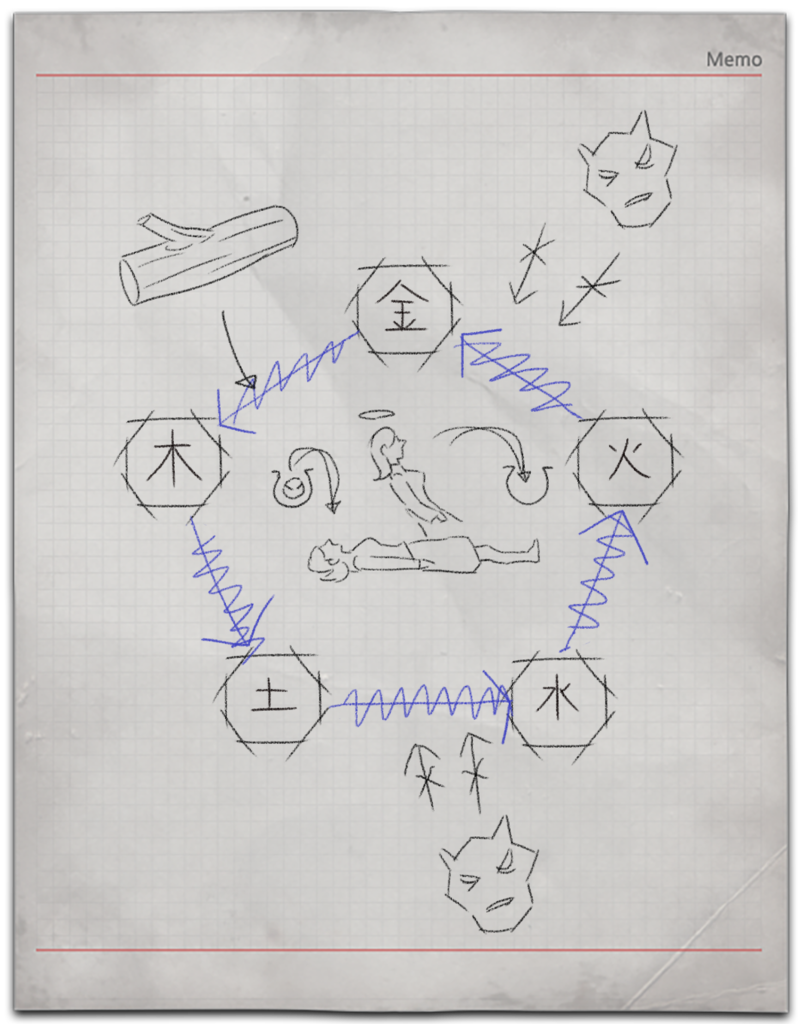 Memo
金
木
火
土
水